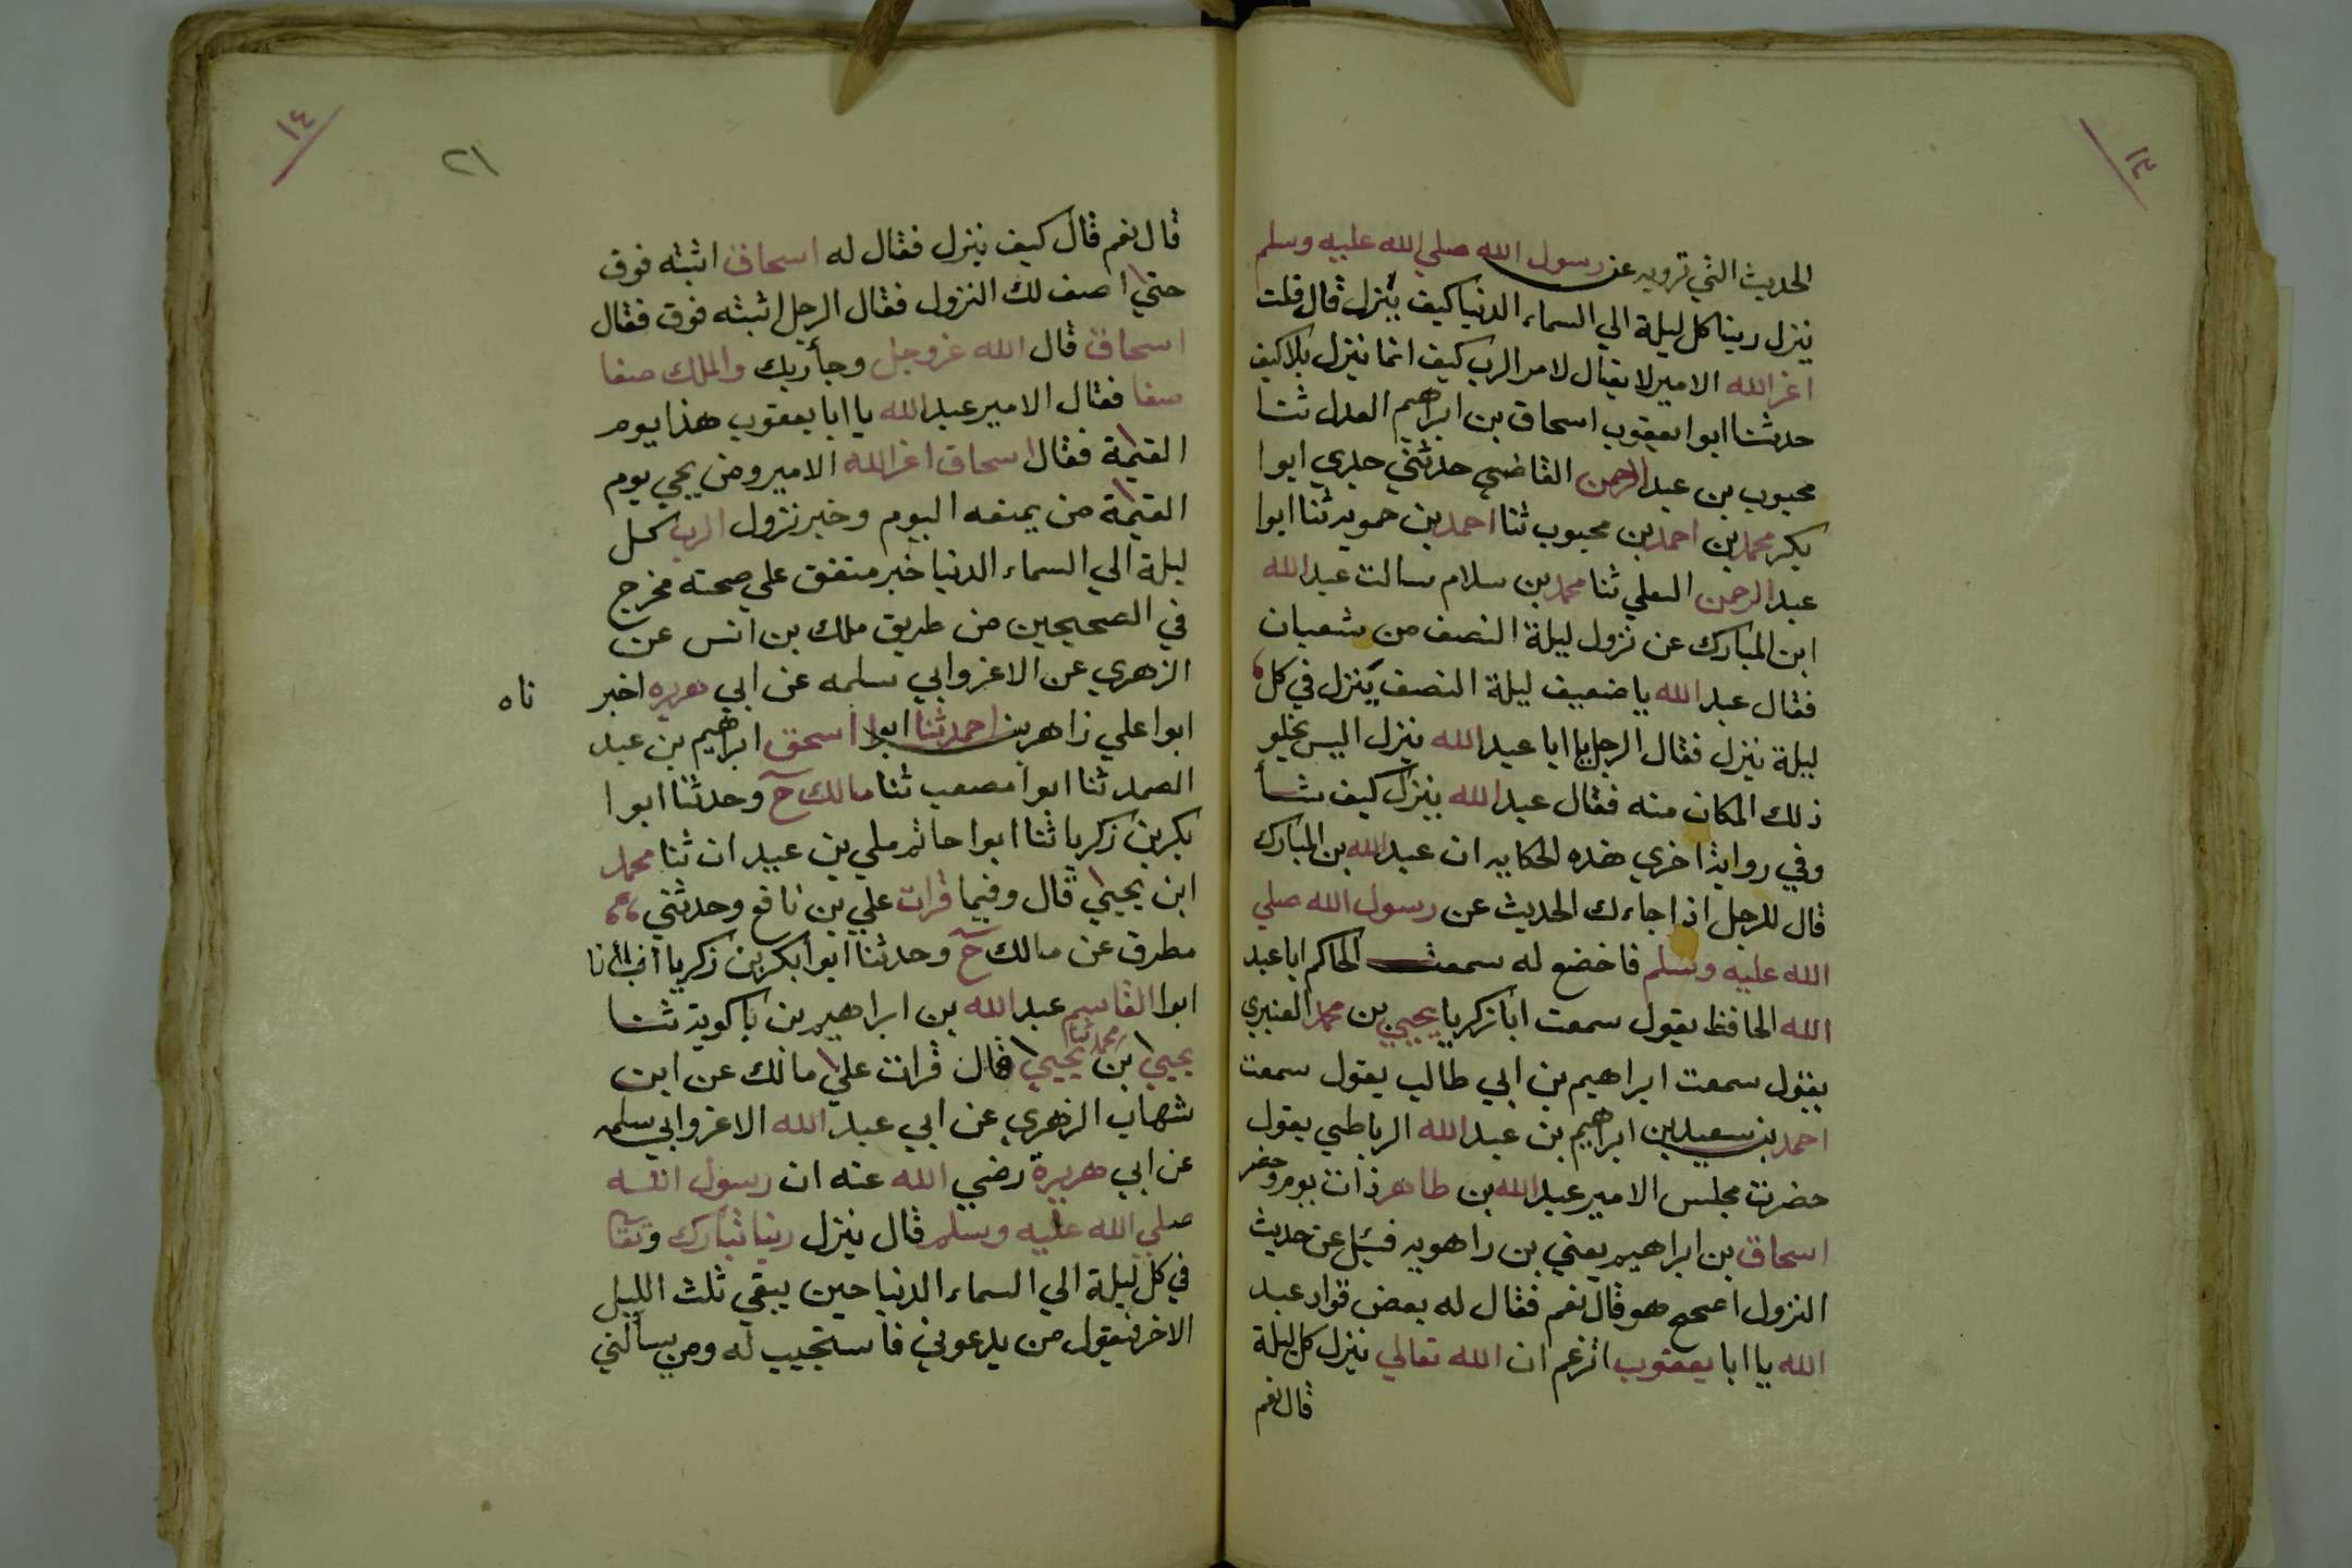 ١٤
الحديث التي ترويه عن رسول الله صلي الله عليه وسلم
ينزل ربنا كل ليلة الي السماء الدنيا كيف ينزل قال قلت
اعز الله الامير لا يقال لامر الرب كيف انما ينزل بلا كيف
حدثنا ابوا يعقوب اسحاق بن ابرهيم العدل ثنا
محبوب بن عبد الرحمن القاضي حدثني جدي ابوا
بكر محمد بن احمد بن محبوب ثنا احمد بن حمويه ثنا ابوا
عبد الرحمن العلي ثنا محمد بن سلام سالت عبد الله
ابن المبارك عن نزول ليلة النصف من شعبان
فقال عبد الله يا ضعيف ليلة النصف ينزل في كل
ليلة ينزل فقال الرجل يا ابا عبد الله ينزل اليس يخلو
ذلك المكان منه فقال عبد الله ينزل كيف شأ
وفي رواية اخري هذه الحكايه ان عبد الله بن المبارك
قال للرجل اذا جاءك الحديث عن رسول الله صلي
الله عليه وسلم فاخضع له سمعت الحاكم ابا عبد
الله الحافظ يقول سمعت ابا زكريا يحيي بن محمد العنبري
يقول سمعت ابراهيم بن ابي طالب يقول سمعت
احمد بن سعيد بن ابراهيم بن عبد الله الرباطي يقول
حضرت مجلس الامير عبد الله بن طاهر ذات يوم وحضر
اسحاق بن ابراهيم يعني بن راهويه فسئل عن حديث
النزول اصحيح هو قال نعم فقال له بعض قواد عبد
الله يا ابا يعقوب اتزعم ان الله تعالي ينزل كل ليلة
قال نعم
١٤
٢١
قال نعم قال كيف ينزل فقال له اسحاق اثبته فوق
حتي اصف لك النزول فقال الرجل اثبته فوق فقال
اسحاق قال الله عز وجل وجأ ربك والملك صفا
صفا فقال الامير عبد الله يا ابا يعقوب هذا يوم
القيمة فقال اسحاق اعز الله الامير ومن يجي يوم
القيمة من يمنعه اليوم وخبر نزول الرب كل
ليلة الي السماء الدنيا خبر متفق علي صحته مخرج
في الصحيحين من طريق ملك بن انس عن
الزهري عن الاغر وابي سلمه عن ابي هريره اخبر
ناه
ابوا علي زاهر بن احمد ثنا ابوا اسحق ابرهيم بن عبد
الصمد ثنا ابوا مصعب ثنا مالك ح وحدثنا ابوا
بكر بن زكريا ثنا ابوا حاتم ملي بن عبدان ثنا محمد
ابن يحيي قال وفيما قرات علي بن نافع وحدثني
مطرف عن مالك ح وحدثنا ابوا بكر بن زكريا انبأنا
ابوا القاسم عبد الله بن ابراهيم بن باكويه ثنا
يحيي بن محمد ثنا يحيي قال قرات علي مالك عن ابن
شهاب الزهري عن ابي عبد الله الاغر وابي سلمه
عن ابي هريرة رضي الله عنه ان رسول الله
صلي الله عليه وسلم قال ينزل ربنا تبارك وتعا
في كل ليلة الي السماء الدنيا حين يبقي ثلث الليل
الاخر فيقول من يدعوني فاستجيب له ومن يسألني